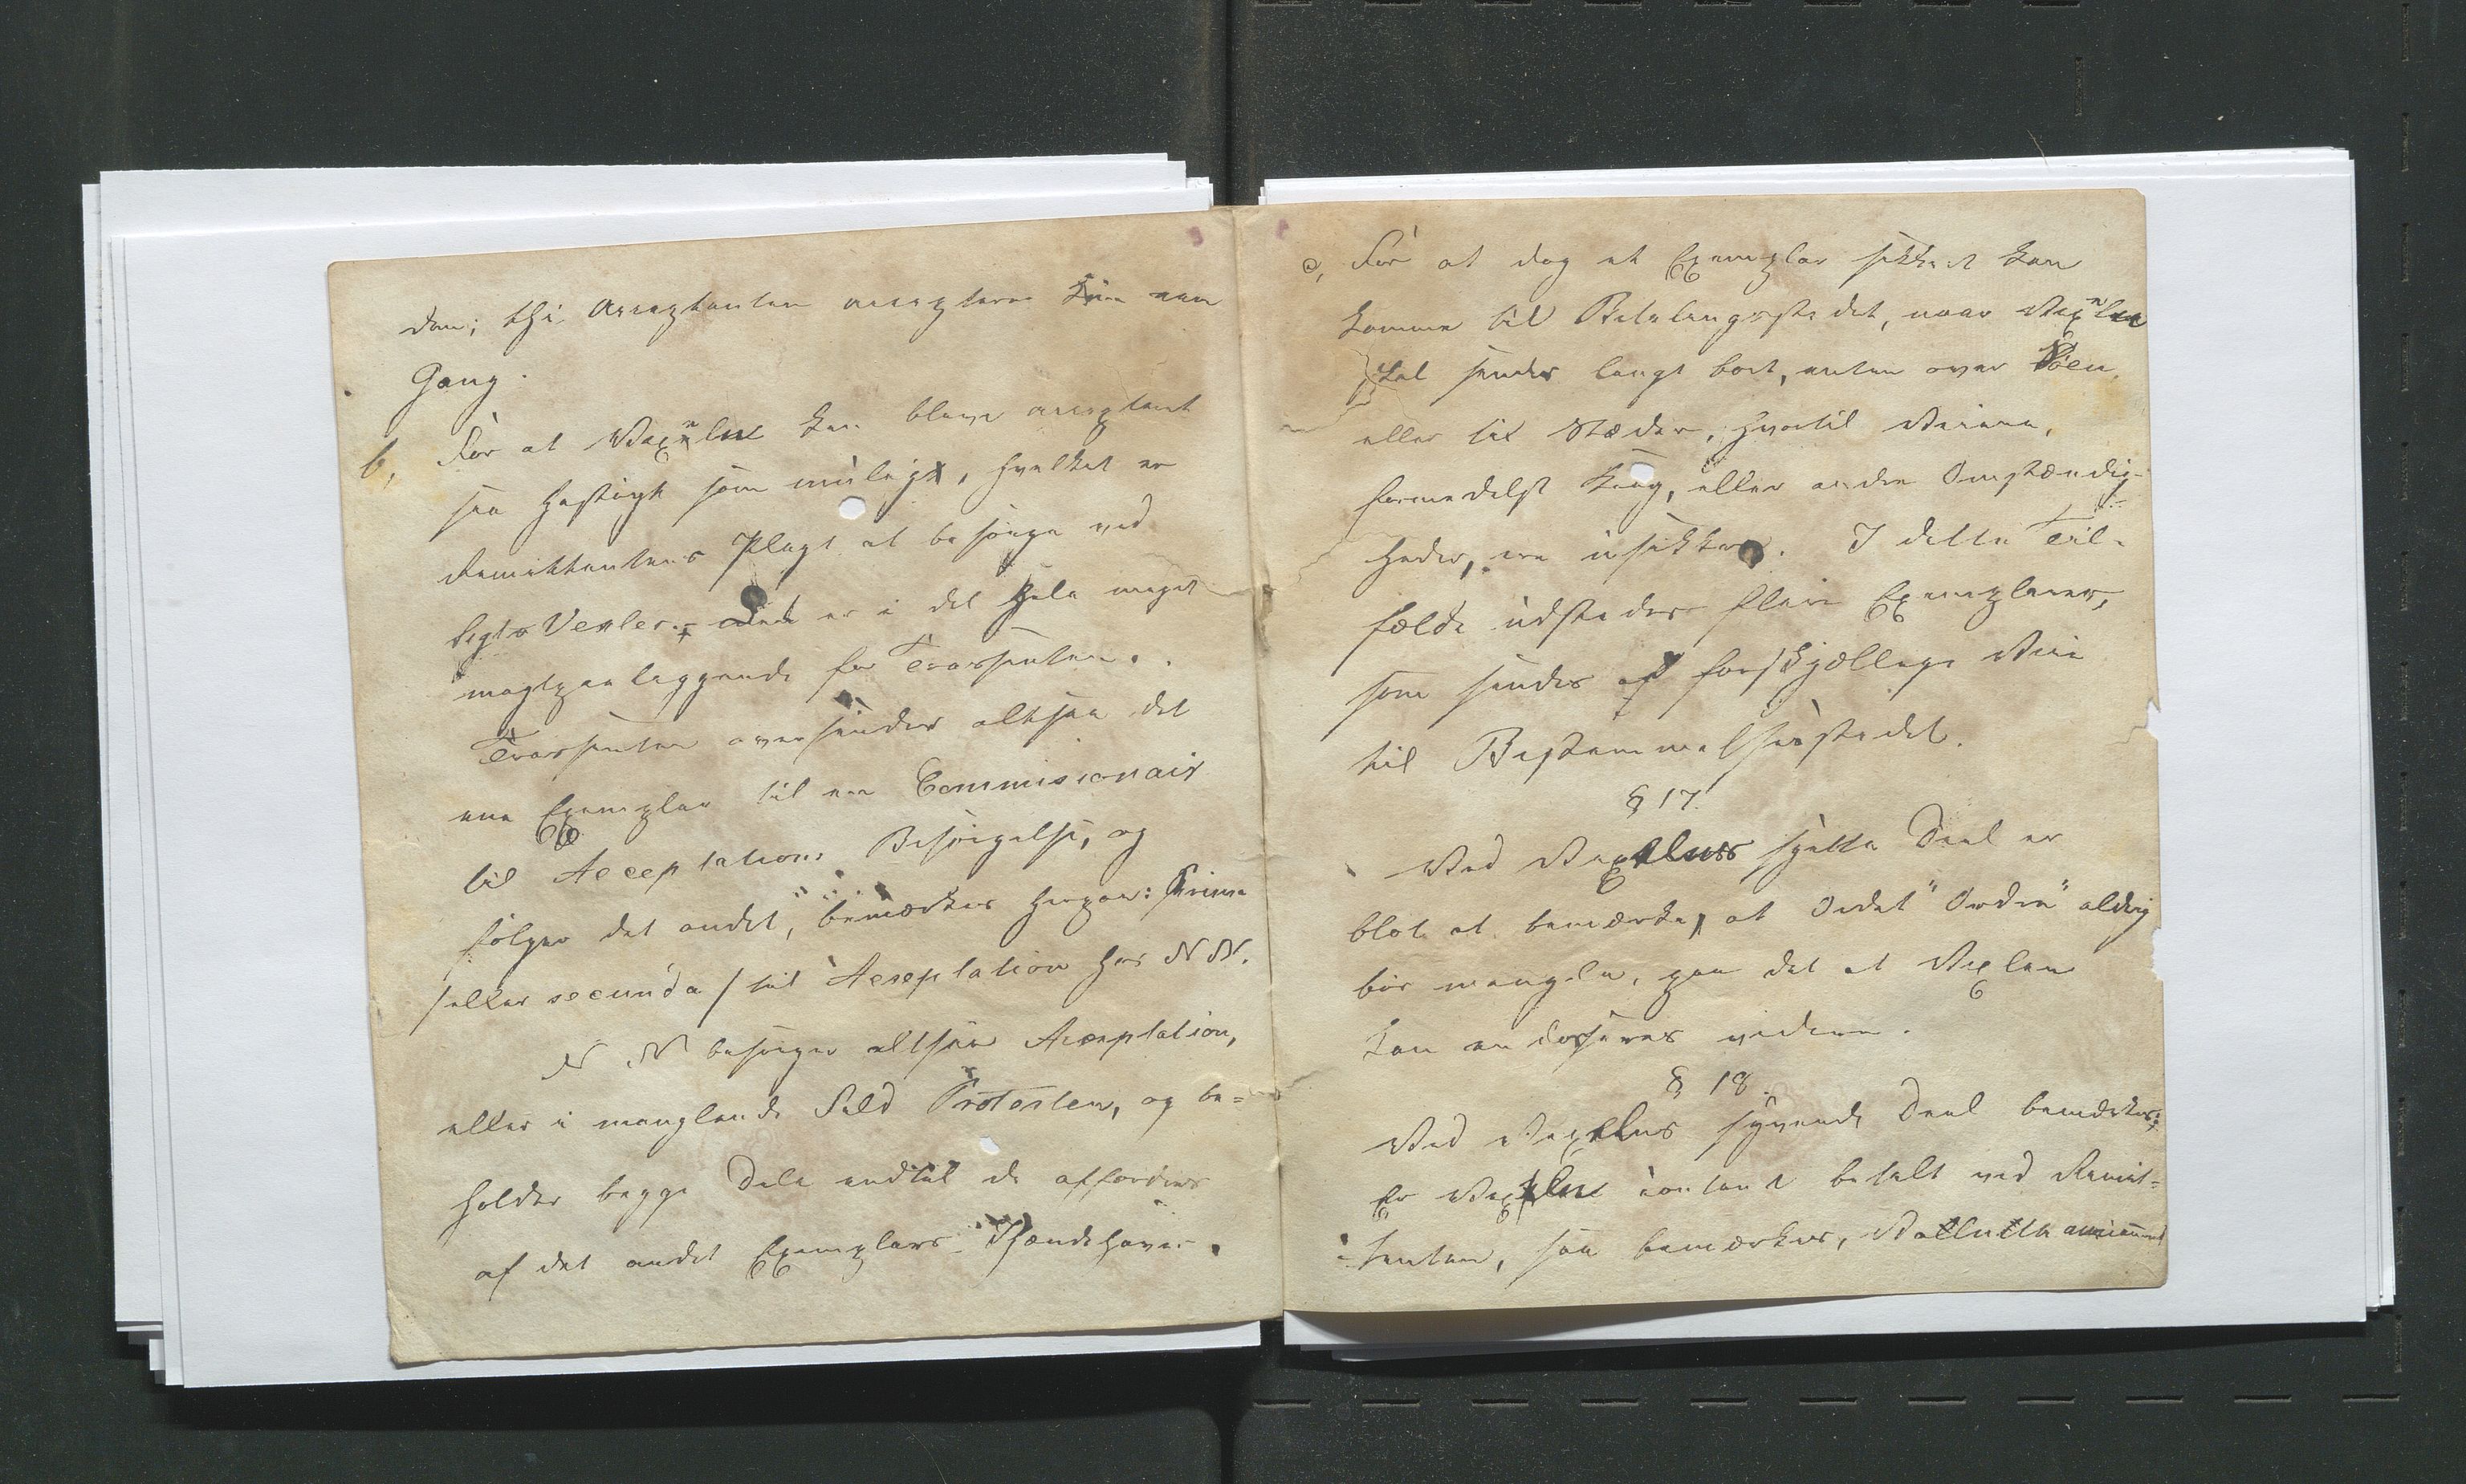 den; thi Acceptanten accepterer kun een
Gang.
b, For at Vexelen kan blive acceptert
saa hastigt som muligt, hvilket er
Remittentens Pligt at besørge ved
Sigts Vexler. Dette er i det hele meget
magtpaaliggende for Trassenten.
Trassenten oversender altsaa det
ene Exemplar til en Commissionair
til Acceptations Besørgelse, og
følger det andet, bemærkes herpaa: Prima
/eller secunda/ til Acceptation hos NN.
N. N besørger altsaa Acceptation,
eller i manglende Fald Protesten, og be=
holder begge Dele indtil de affordres
af det andet Exemplars Ihændehaver.
c, For at dog et Exemplar sikkert kan
komme til Betalingsstedet, naar Vexelen
skal sendes langt bort, enten over Søen,
eller til Stæder, hvortil Veiene,
formedelst Krig, eller andre Omstændig-
heder, ere usikkre. I dette Til=
fælde udstedes flere Exemplarer,
som sendes af forskjællige Veie
til Bestemmelsesstedet.
§ 17.
Ved Vexelens sjette Deel er
blot at bemærke, at Ordet "Ordre" aldrig
bør mangle, paa det at Vexlen
kan endosseres videre.
§ 18.
Ved Vexelens syvende Deel bemærkes:
Er Vexelen contant betalt ved Remit=
=tenten, saa bemærkes, Valutta